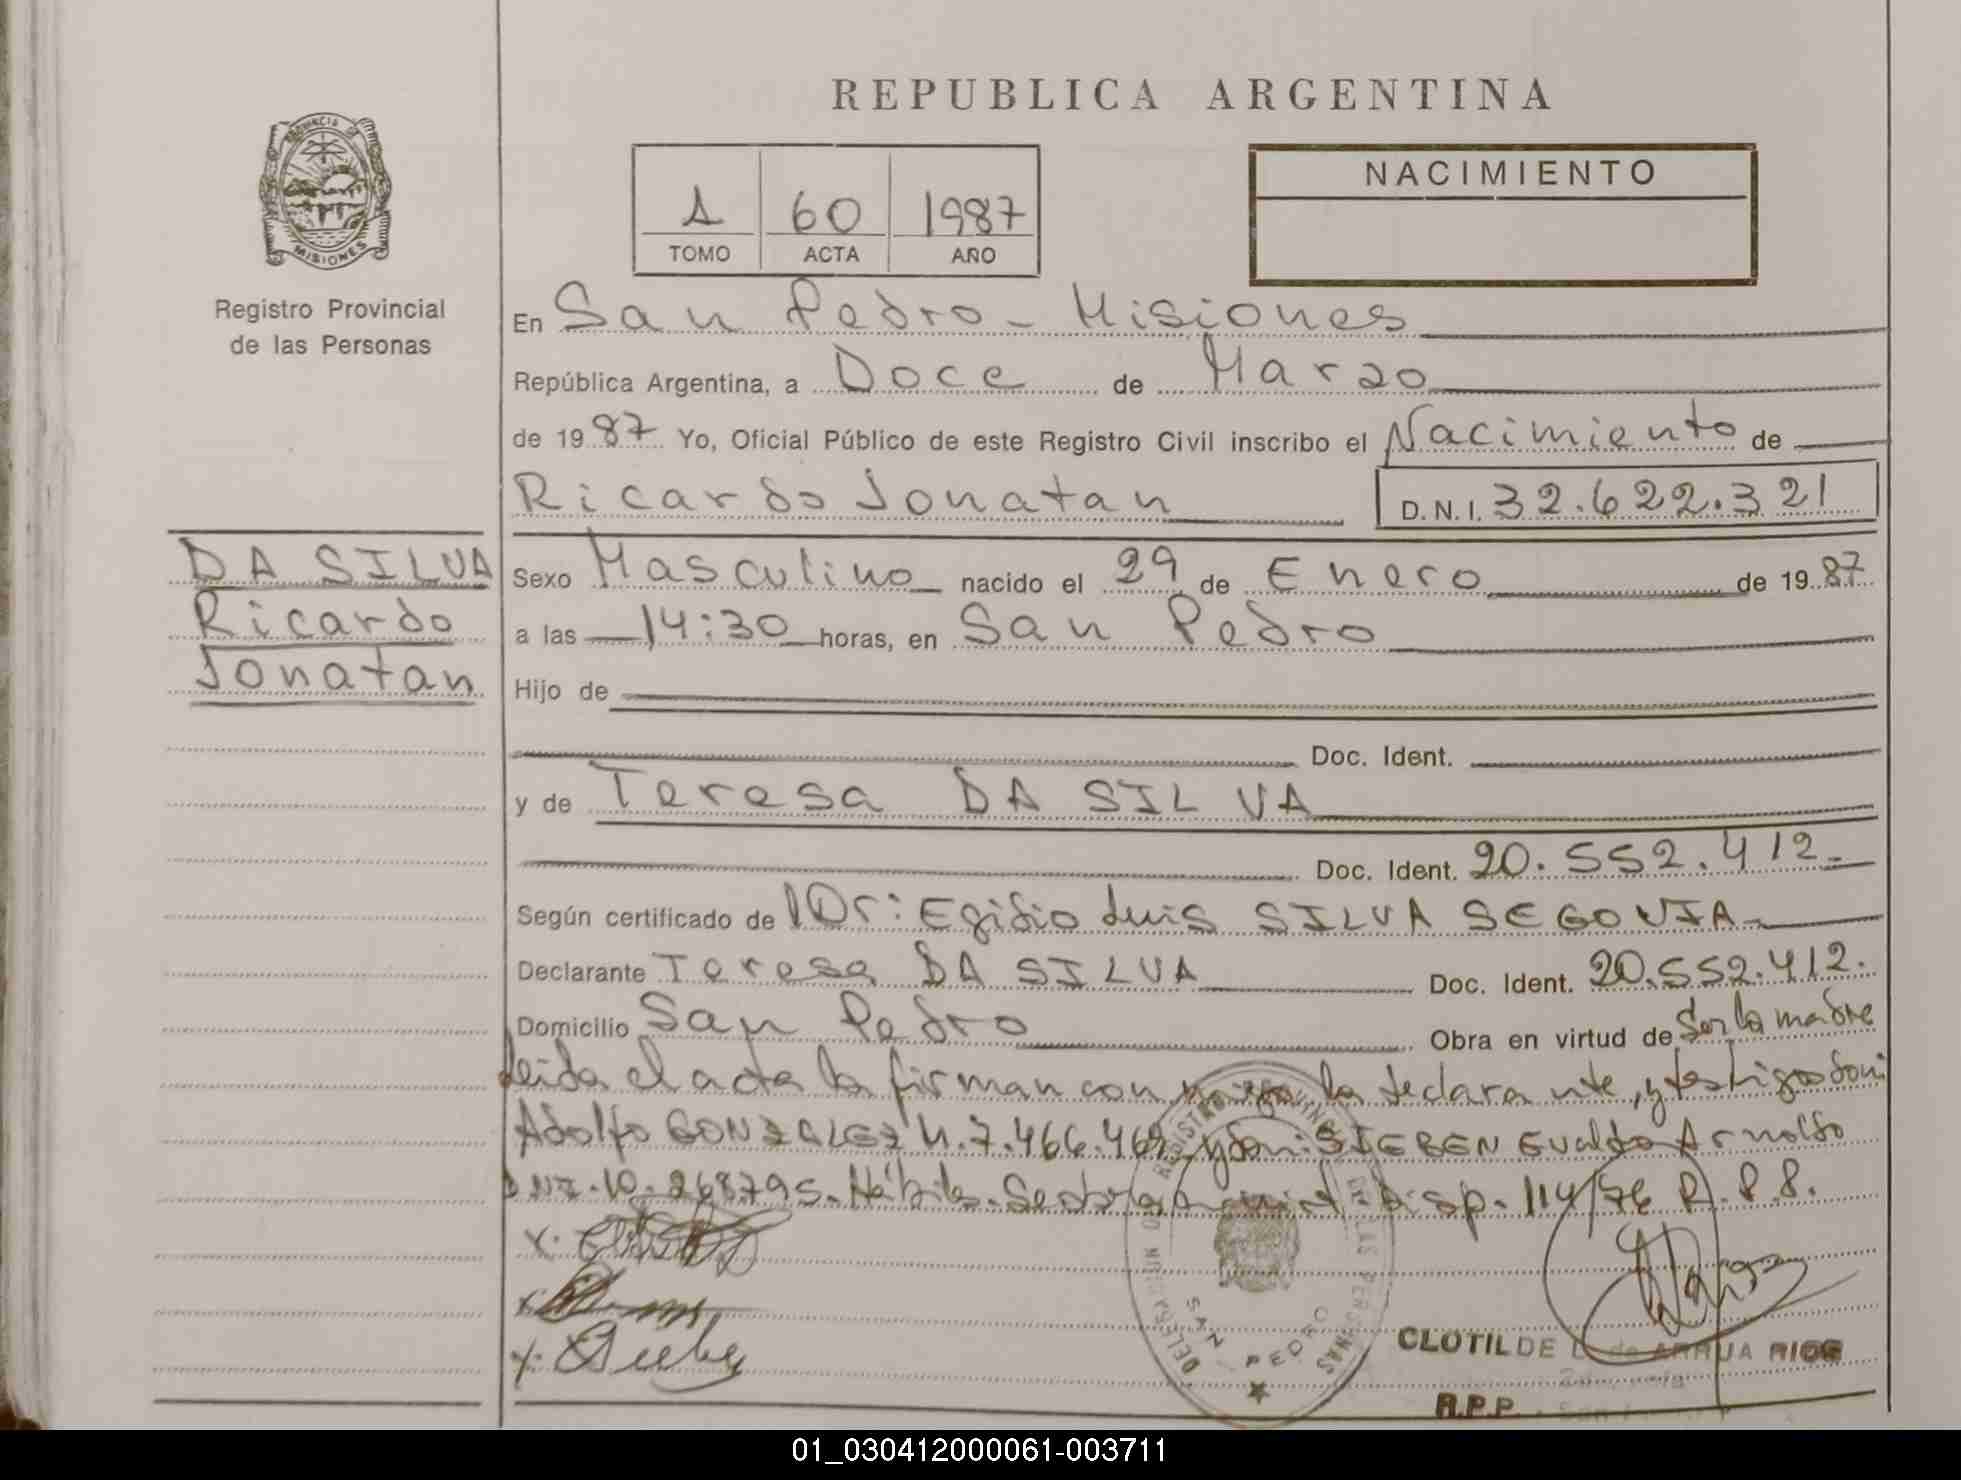 REPUBLICA ARGENTINA
PROVINCIA DE
MISIONES
Registro Provincial
de las Personas
1 60 1987
TOMO ACTA AÑO
NACIMIENTO
En San Pedro - Misiones
República Argentina, a Doce de Marzo
de 1987 Yo, Oficial Público de este Registro Civil inscribo el Nacimiento de
Ricardo Jonatan D.N.I. 32.622.321
DA SILVA
Ricardo
Jonatan
Sexo Masculino nacido el 29 de Enero de 1987
a las 14:30 horas, en San Pedro
Hijo de
Doc. Ident.
y de Teresa DA SILVA
Doc. Ident. 20.552.412.-
Según certificado de Dr: Egidio Luis SILVA SEGOVIA
Declarante Teresa DA SILVA Doc. Ident. 20.552.412.
Domicilio San Pedro Obra en virtud de Ser la madre
Leida el acta la firman con migo la declarante, y testigos
Adolfo GONZALEZ 7.466. SIEBEN Evaldo Arnoldo
10.268795. Hábiles. Disp. 114/76 R.P.P.
x.
x.
x.
DELEGACION REGISTRO PROVINCIAL DE LAS PERSONAS
SAN PEDRO
CLOTILDE de ARRUA RIOS
R.P.P.
01_030412000061-003711